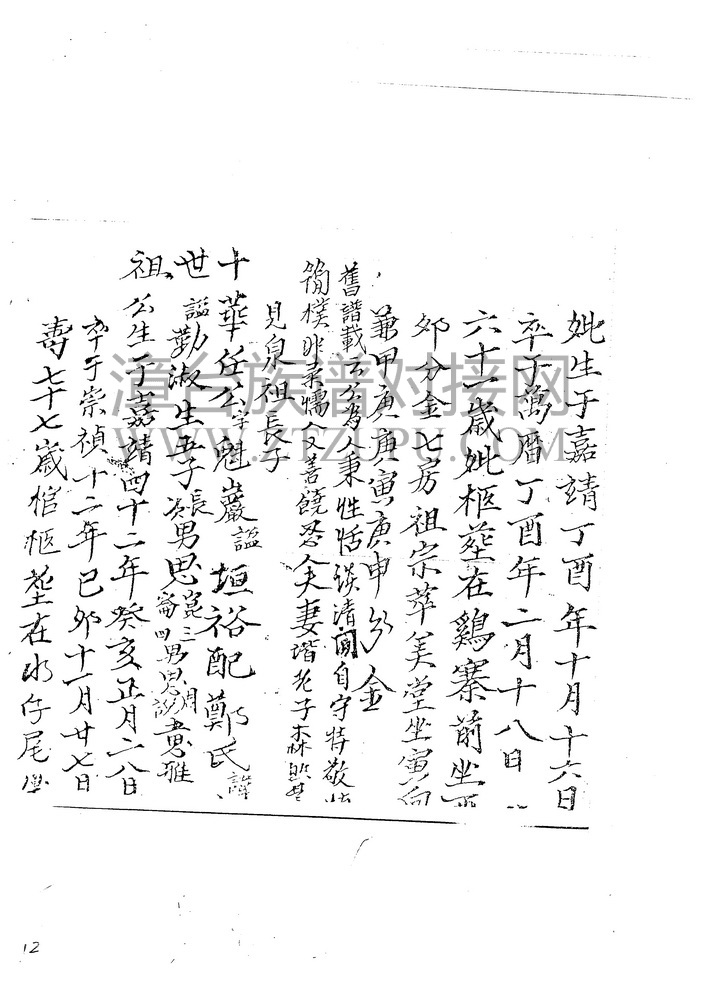 妣生于嘉靖丁酉年十月十六日
卒于萬曆丁酉年二月十八日
六十一歲妣柩塟在鷄寨前坐酉
夘分金七房祖宗萃美堂坐寅向
兼甲庚庚寅庚申分金
舊譜載公為人秉性恬淡清閒自守特敬
簡樸非柔懦又善饒忍夫妻諧老子森
見泉祖長子
十華任公字魁巖謚垣裕配鄭氏諱
世謚勤淑生五子長男思崑三男思次崙四男思雅
祖公生于嘉靖四十二年癸亥正月二八日
卒于崇禎十二年已夘十一月廿七日
壽七十七歲棺柩塟在水仔尾
漳台族谱对接网
WWW.ZTZUPU.COM
12